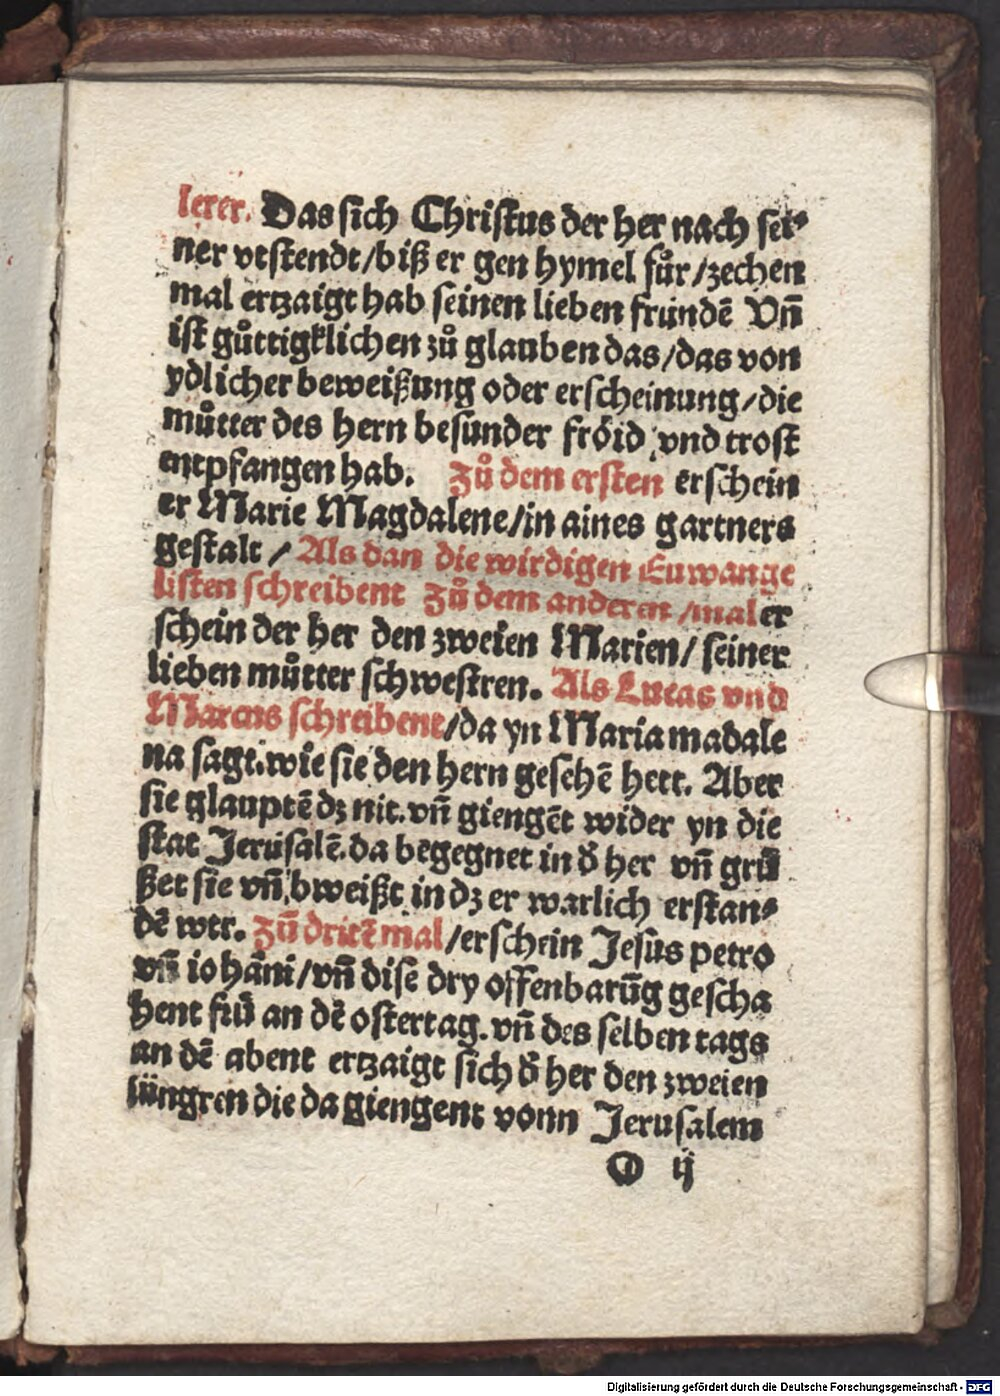 lerer. Das sich Christus der her nach sei⸗
ner vrstendt/biß er gen hymel fůr/zechen
mal ertzaigt hab seinen lieben frundē Vn̄
ist gůttigklichen zů glauben das/das von
ydlicher beweißung oder erscheinung/die
můtter des hern besunder fröid vnd trost
entpfangen hab. Zů dem ersten erschein
er Marie Magdalene/in aines gartners
gestalt/Als dan die wirdigen Euwange
listen schreibent Zů dem anderen/mal er
schein der her den zweien Marien/seiner
lieben můtter schwestren. Als Lucas vnd
Marcus schreibent/da yn Maria madale
na sagt.wie sie den hern gesehē hett. Aber
sie glauptē dz nit.vn̄ giengēt wider yn die
stat Jerusalē.da begegnet in d' her vn̄ grů
ßet sie vn̄ bweißt in dz er warlich erstan⸗
dē wer. Zū dritē mal/erschein Jesus petro
vn̄ iohāni/vn̄ dise dry offenbarūg gescha
hent fru an dē ostertag.vn̄ des selben tags
an dē abent ertzaigt sich d' her den zweien
iüngren die da giengent vonn Jerusalem
O ij
Digitalisierung gefördert durch die Deutsche Forschungsgemeinschaft - DFG